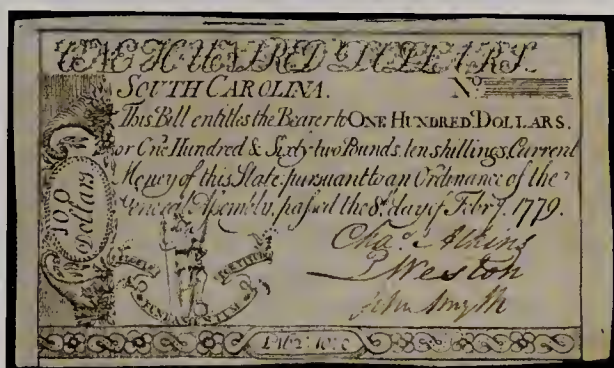 ONE HUNDRED DOLLARS.
SOUTH CAROLINA. No
This Bill entitles the Bearer to ONE HUNDRED DOLLARS.
or One Hundred & Sixty-two Pounds, ten shillings, Current
Money of this State; pursuant to an Ordinance of the
General Assembly, passed the 8th. day of Febry. 1779.
100 Dollars
Chas. Atkins
P Weston
John Smyth
£162: 10: 0